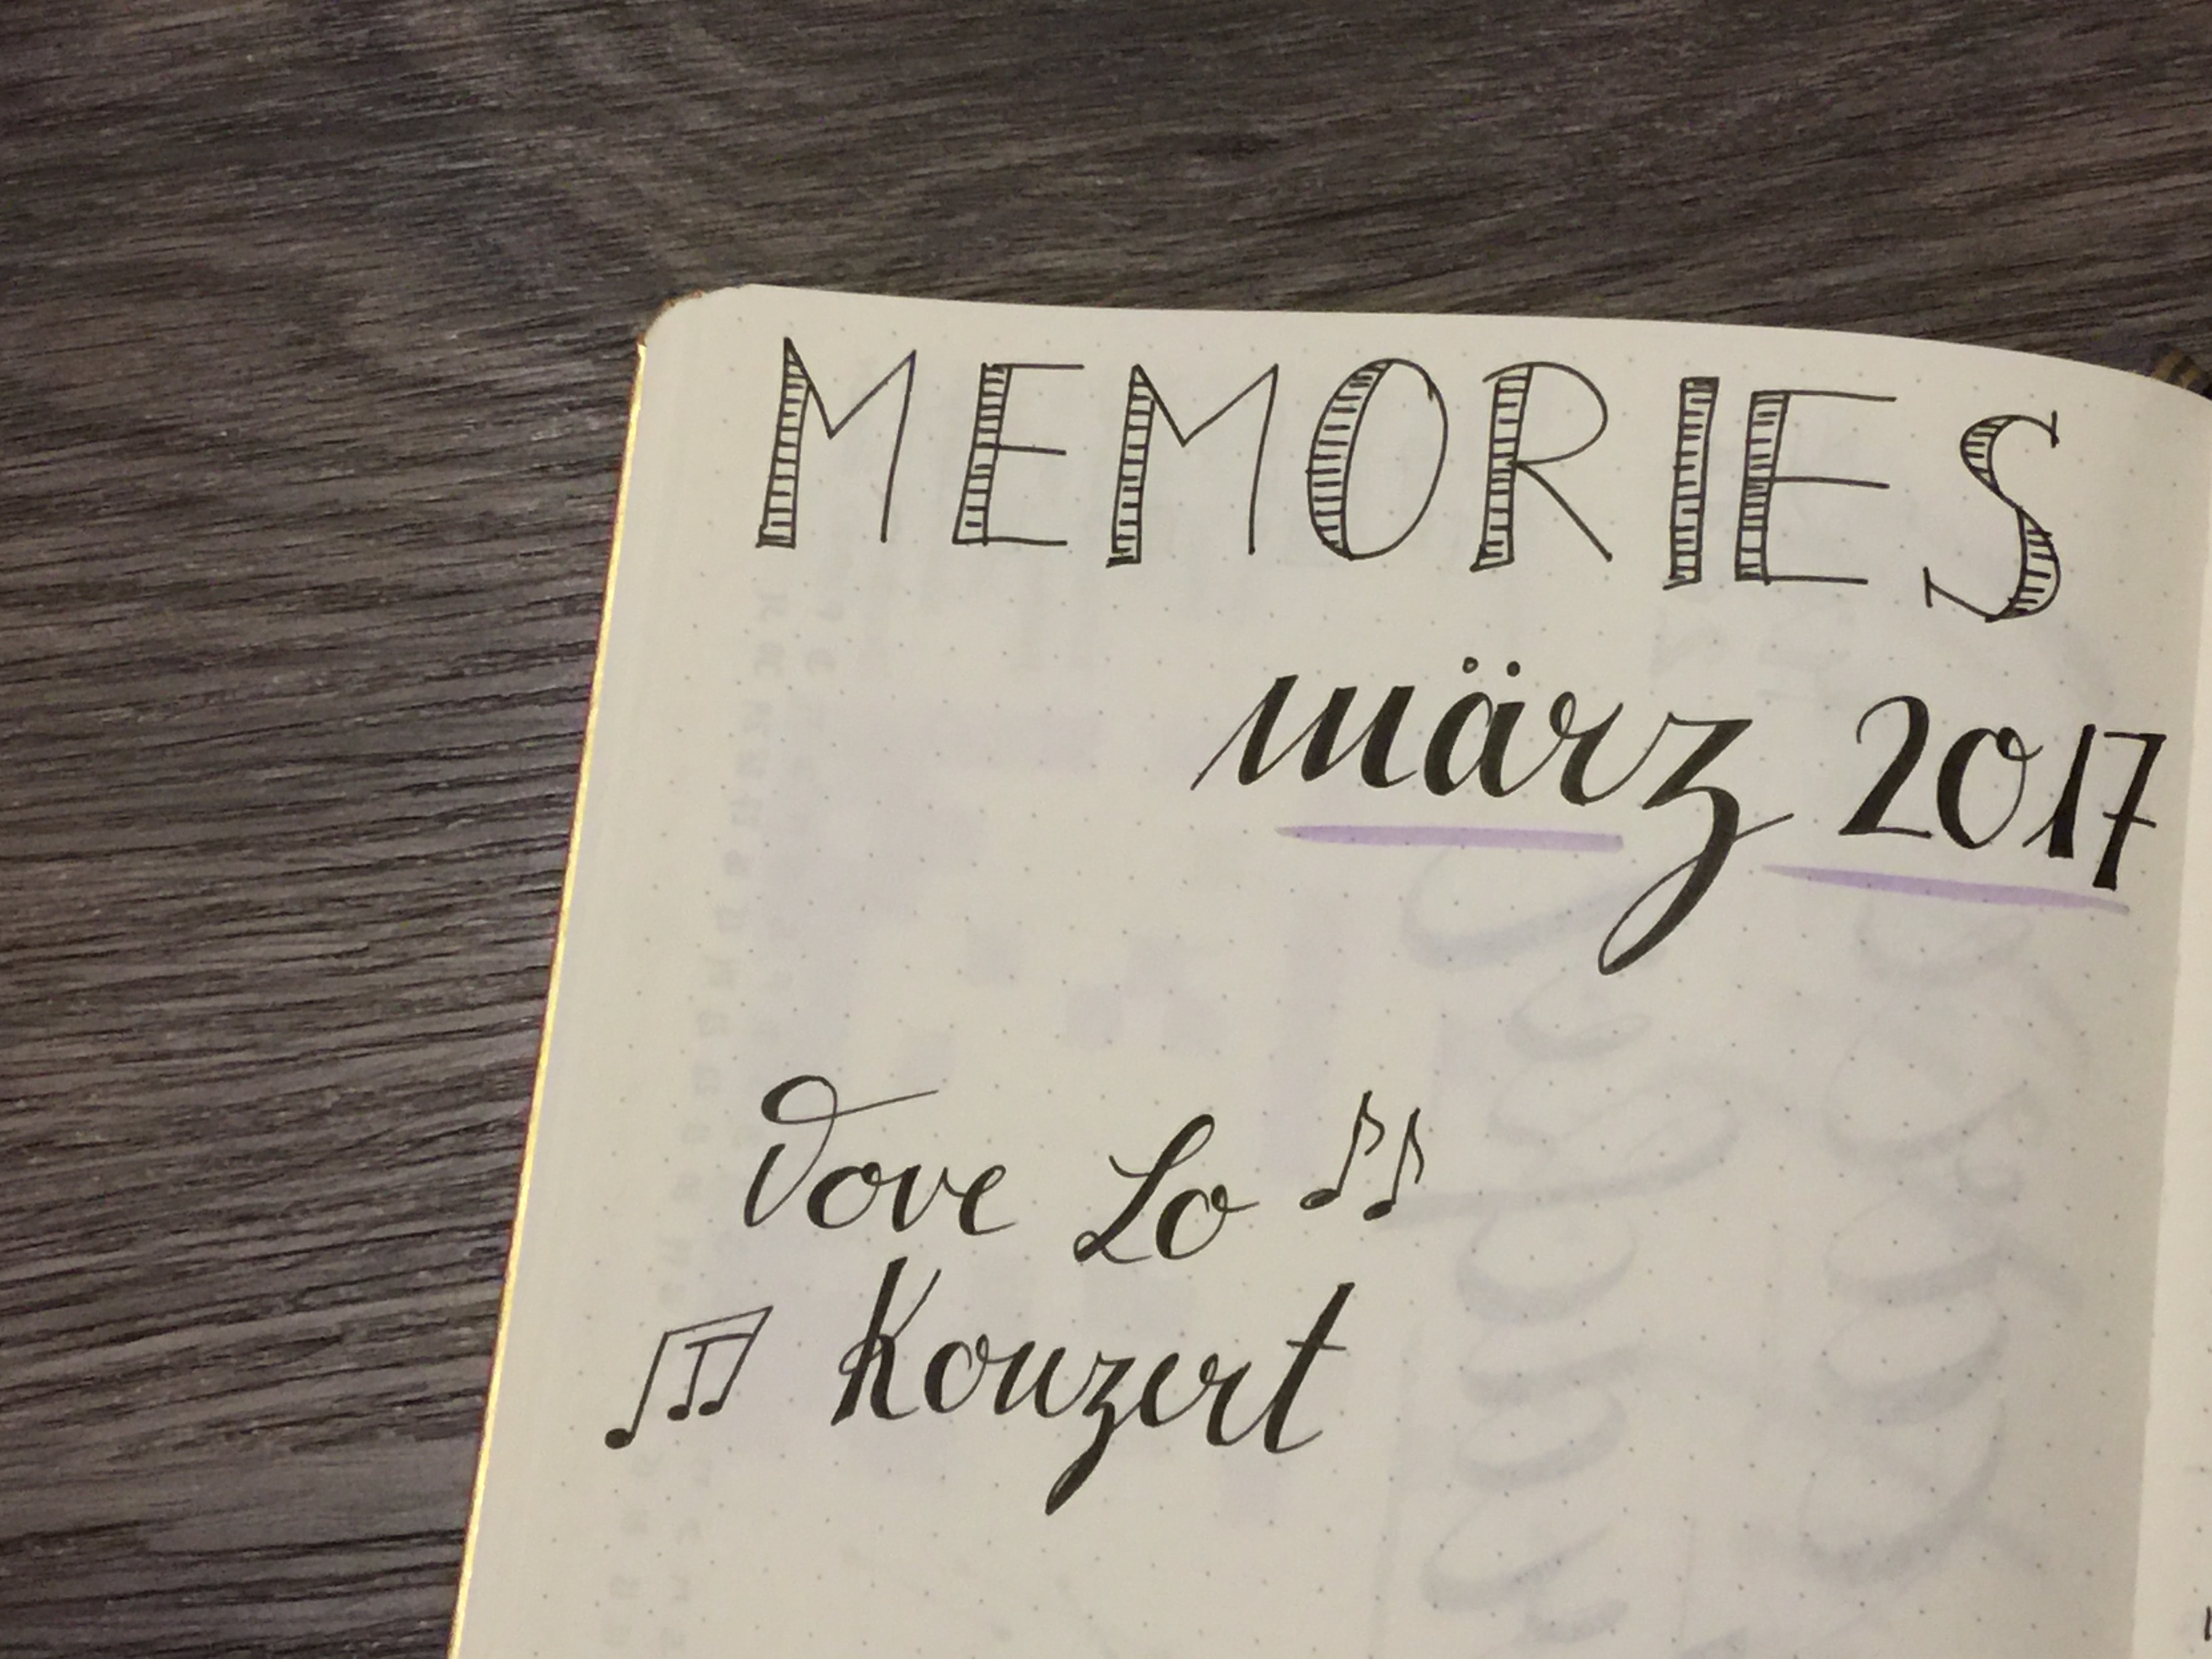 MEMORIES
märz 2017
Tove Lo
Konzert